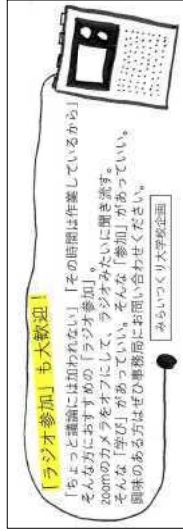 「ラジオ参加」も大歓迎！
「ちょっと議論には加われない」「その時間は作業しているから」
そんな方におすすめの「ラジオ参加」。
zoomのカメラをオフにして、ラジオみたいに聞き流す。
そんな「学び」があっていい。そんな「参加」があっていい。
興味のある方はぜひ事務局にお問い合わせください。
みらいつくり大学校企画